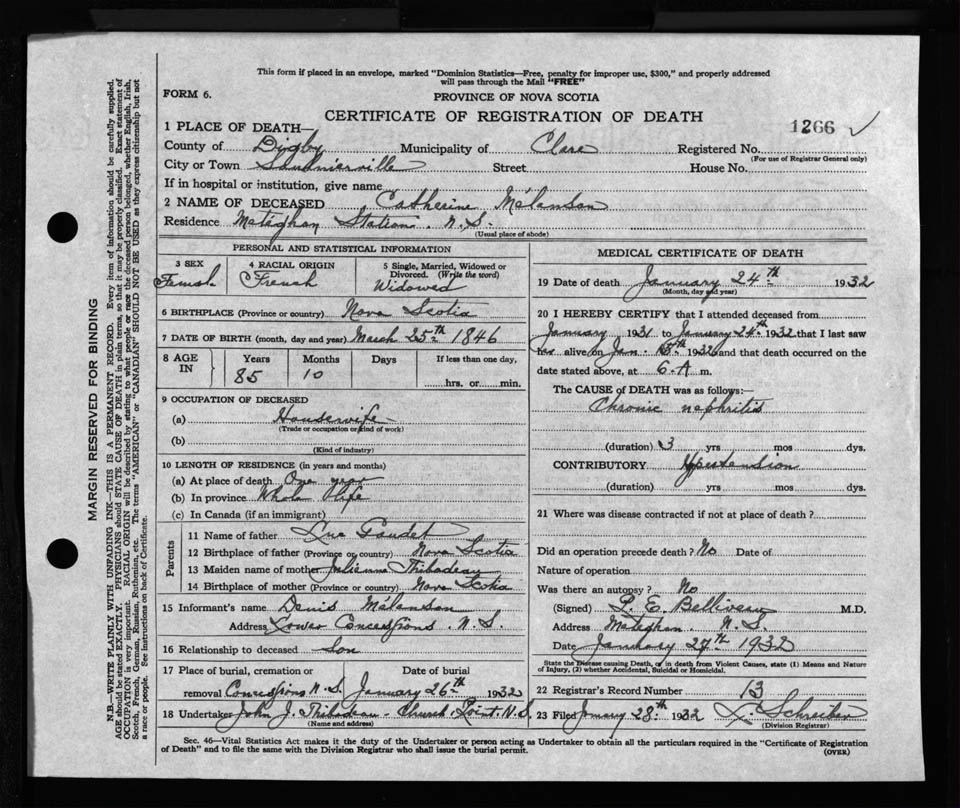 This form if placed in an envelope, marked "Dominion Statistics—Free, penalty for improper use, $300," and properly addressed
will pass through the Mail "FREE"
FORM 6.
PROVINCE OF NOVA SCOTIA
CERTIFICATE OF REGISTRATION OF DEATH
1266 ✓
1 PLACE OF DEATH—
County of Digby Municipality of Clare Registered No.
(For use of Registrar General only)
City or Town Saulnierville Street House No.
If in hospital or institution, give name
2 NAME OF DECEASED Catherine Mélanson
Residence Meteghan Station. N.S.
(Usual place of abode)
PERSONAL AND STATISTICAL INFORMATION
3 SEX
Femal.
4 RACIAL ORIGIN
French
5 Single, Married, Widowed or
Divorced. (Write the word)
Widowed
6 BIRTHPLACE (Province or country) Nova Scotia
7 DATE OF BIRTH (month, day and year) March 25th 1846
8 AGE IN
Years Months Days If less than one day,
85 10 hrs. or min.
9 OCCUPATION OF DECEASED
(a) Housewife
(Trade or occupation or kind of work)
(b)
(Kind of industry)
10 LENGTH OF RESIDENCE (in years and months)
(a) At place of death One year
(b) In province Whole life
(c) In Canada (if an immigrant)
Parents
11 Name of father Luc Gaudet
12 Birthplace of father (Province or country) Nova Scotia
13 Maiden name of mother Julienne Thibodeau
14 Birthplace of mother (Province or country) Nova Scotia
15 Informant's name Denis Mélanson
Address Lower Concessions. N.S.
16 Relationship to deceased Son
17 Place of burial, cremation or Date of burial
removal Concessions N.S. January 26th 1932
18 Undertaker John J. Thibodeau - Church Point. N.S.
(Name and address)
MEDICAL CERTIFICATE OF DEATH
19 Date of death January 24th 1932
(Month, day and year)
20 I HEREBY CERTIFY that I attended deceased from
January 1931 to January 24th 1932 that I last saw
her alive on Jan 1932 and that death occurred on the
date stated above, at 6 A m.
The CAUSE of DEATH was as follows:—
Chronic nephritis
(duration) 3 yrs mos dys.
CONTRIBUTORY Hypertension
(duration) yrs. mos dys.
21 Where was disease contracted if not at place of death?
Did an operation precede death? No Date of
Nature of operation
Was there an autopsy? No
(Signed) L. E. Belliveau M.D.
Address Meteghan. N.S.
Date January 27th 1932
State the Disease causing Death, or in death from Violent Causes, state (1) Means and Nature
of Injury, (2) whether Accidental, Suicidal or Homicidal.
22 Registrar's Record Number 13
23 Filed January 28th 1932
(Division Registrar)
Sec. 46—Vital Statistics Act makes it the duty of the Undertaker or person acting as Undertaker to obtain all the particulars required in the "Certificate of Registration
of Death" and to file the same with the Division Registrar who shall issue the burial permit.
(OVER)
MARGIN RESERVED FOR BINDING
N.B—WRITE PLAINLY WITH UNFADING INK—THIS IS A PERMANENT RECORD. Every item of information should be carefully supplied.
AGE should be stated EXACTLY. PHYSICIANS should STATE CAUSE OF DEATH in plain terms, so that it may be properly classified. Exact statement of
OCCUPATION is very important. RACIAL ORIGIN will be described by stating to what people or race the deceased person belonged, whether English, Irish,
Scotch, French, German, Russian, Ruthenian, etc. The terms "AMERICAN" or "CANADIAN" SHOULD NOT BE USED as they express citizenship but not
a race or people. See instructions on back of Certificate.